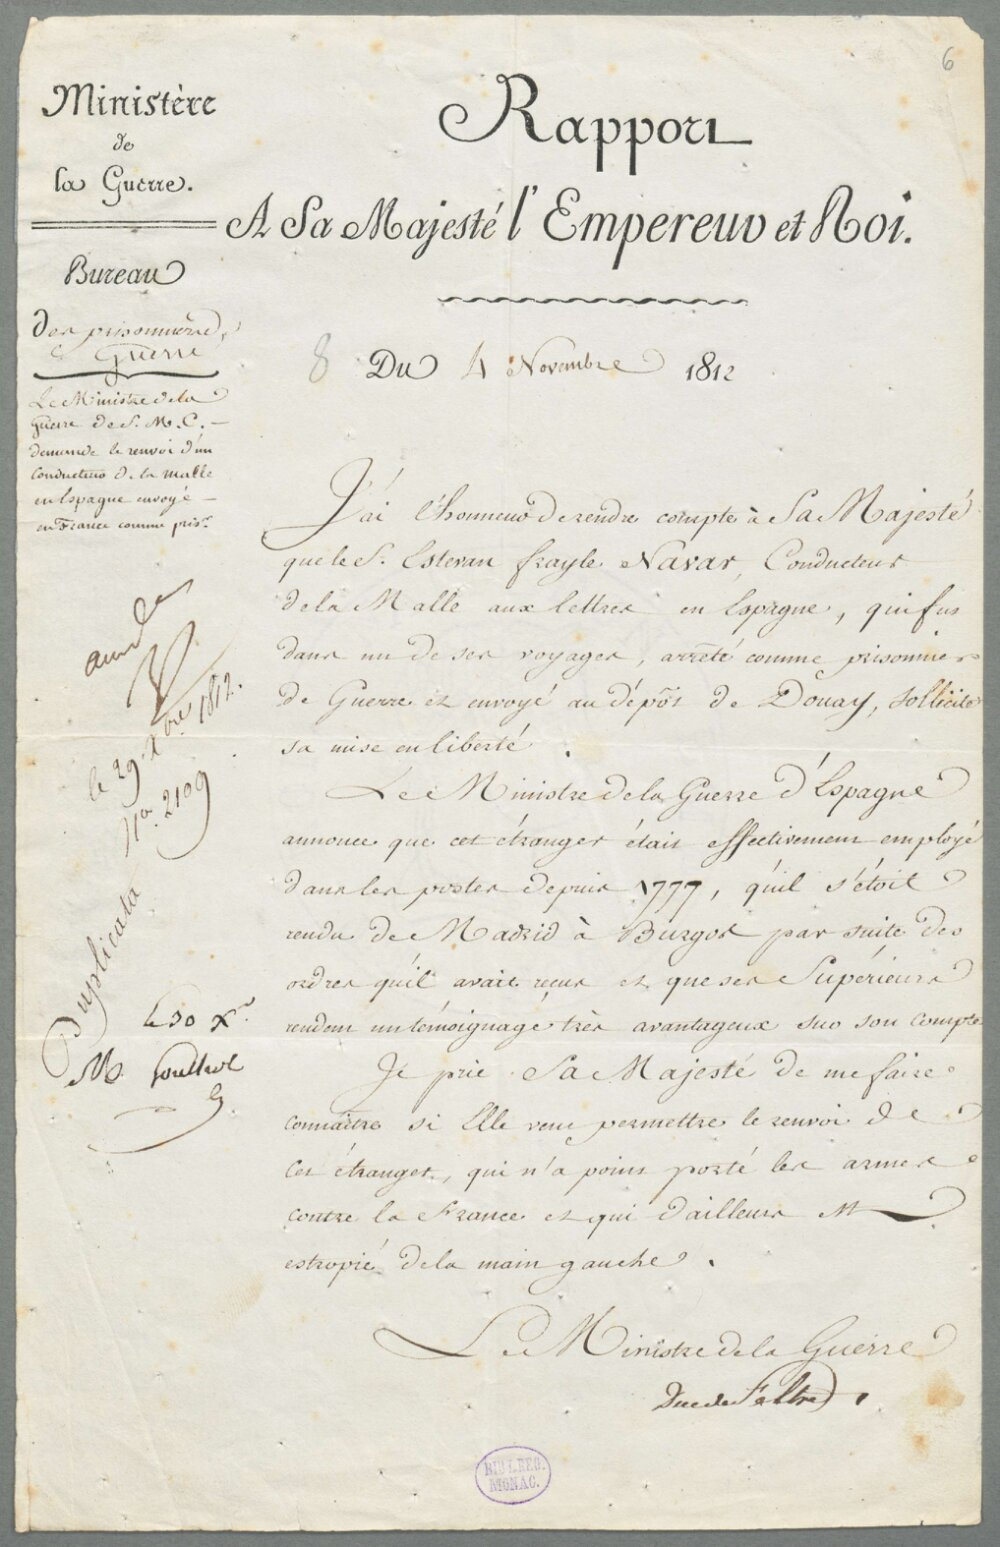 6
Ministère
de
la Guerre.
Bureau
des prisonniers
de Guerre
Le Ministre de la
Guerre de S. M. C.
demande le renvoi d'un
conducteur de la malle
en Espagne envoyé
en France comme pris.r
Rapport
A Sa Majesté l'Empereur et Roi.
8 Du 4 Novembre 1812
J'ai l'honneur de rendre compte à Sa Majesté
que le S.r Estevan frayle Navar, Conducteur
de la Malle aux lettres en Espagne, qui fut
dans un de ses voyages, arrêté comme prisonnier
de Guerre et envoyé au dépôt de Douay, sollicite
sa mise en liberté.
Le Ministre de la Guerre d'Espagne
annonce que cet étranger était effectivement employé
dans les postes depuis 1777, qu'il s'étoit
rendu de Madrid à Burgos par suite des
ordres qu'il avait reçus et que ses Supérieurs
rendent un témoignage très avantageux sur son compte
Je prie Sa Majesté de me faire
connaître si Elle veut permettre le renvoi de
cet étranger, qui n'a point porté les armes
contre la France et qui d'ailleurs est
estropié de la main gauche.
Le Ministre de la Guerre
Duc de Feltre
le 29 Xbre 1812.
2109
Duplicata
le 30 X.re
M.
BIBL. REG.
MONAC.